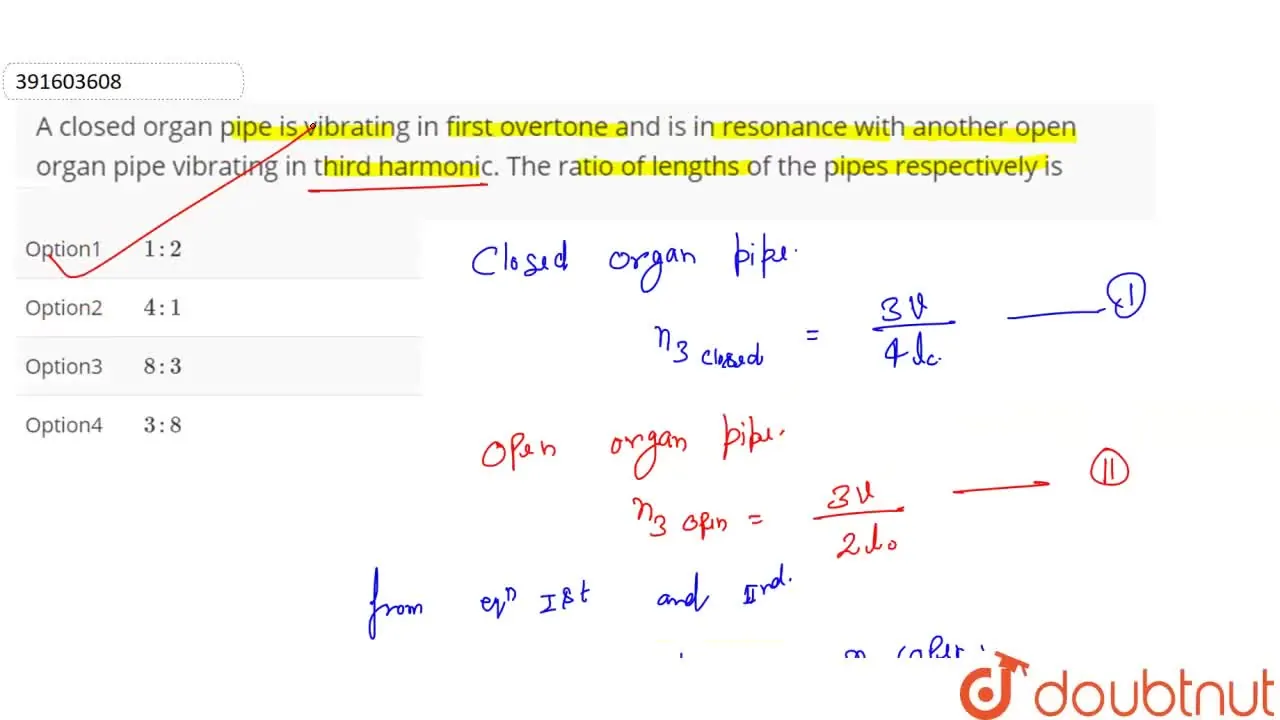 391603608
A closed organ pipe is vibrating in first overtone and is in resonance with another open
organ pipe vibrating in third harmonic. The ratio of lengths of the pipes respectively is
Option1 1 : 2
Option2 4 : 1
Option3 8 : 3
Option4 3 : 8
Closed organ pipe.
n3 closed = 3v / 4lc. I
Open organ pipe.
n3 open = 3v / 2lo II
from eqn Ist and IInd.
doubtnut